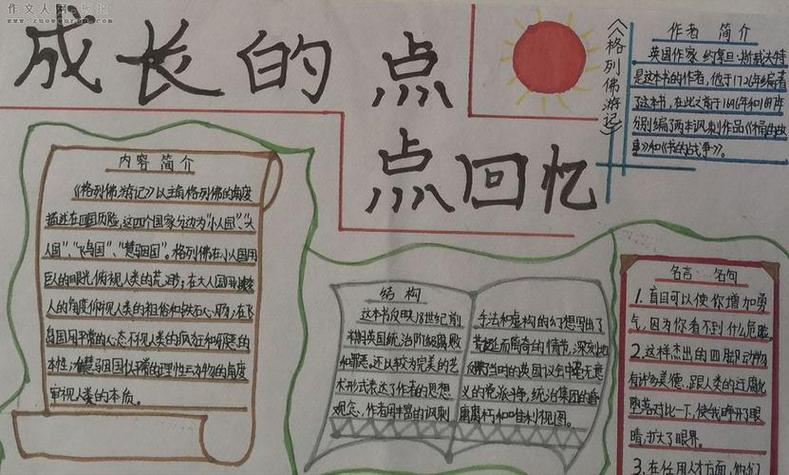 作文人网
www.zuowenren.com
成长的点
点回忆
《格列佛游记》
作者 简介
英国作家 约拿旦·斯威夫特
是这本书的作者,他于1726年编著
了这本书,在此之前于1696年和1697年
分别编了两本讽刺作品《桶的故
事》和《书的战争》。
内容 简介
《格列佛游记》以主角格列佛的角度
描述在四国历险,这四个国家分边为"小人国"、"大
人国"、"飞岛国"、"慧骃国"。格列佛在小人国用
巨人的眼光,俯视人类的荒
人的角度仰视人类的粗俗和铁石心肠;在飞
岛国用平常的心态不视人类的疯狂和邪恶的
本性;在慧骃国似乎常的理性
审视人类的本质。
结 构
这本书反映18世纪前
半期英国统治阶级腐败
和罪恶,还以较为完美的艺
术形式表达了作者的思想
观念,作者用丰富的讽刺
手法和虚构的幻想写出了
荒诞而离奇的情节,深刻地
反映了当时的英国议会中毫无意
义的党派斗争,统治集团的昏
庸腐朽和唯利视图。
名言 名句
1. 盲目可以使你增加勇
气,因为你看不到什么危险。
2.这样杰出的四脚动物
有许多美德,跟人类的
堕落对比一下,使我睁开了眼
睛,扩大了眼界。
3.在任用人才方面,他们